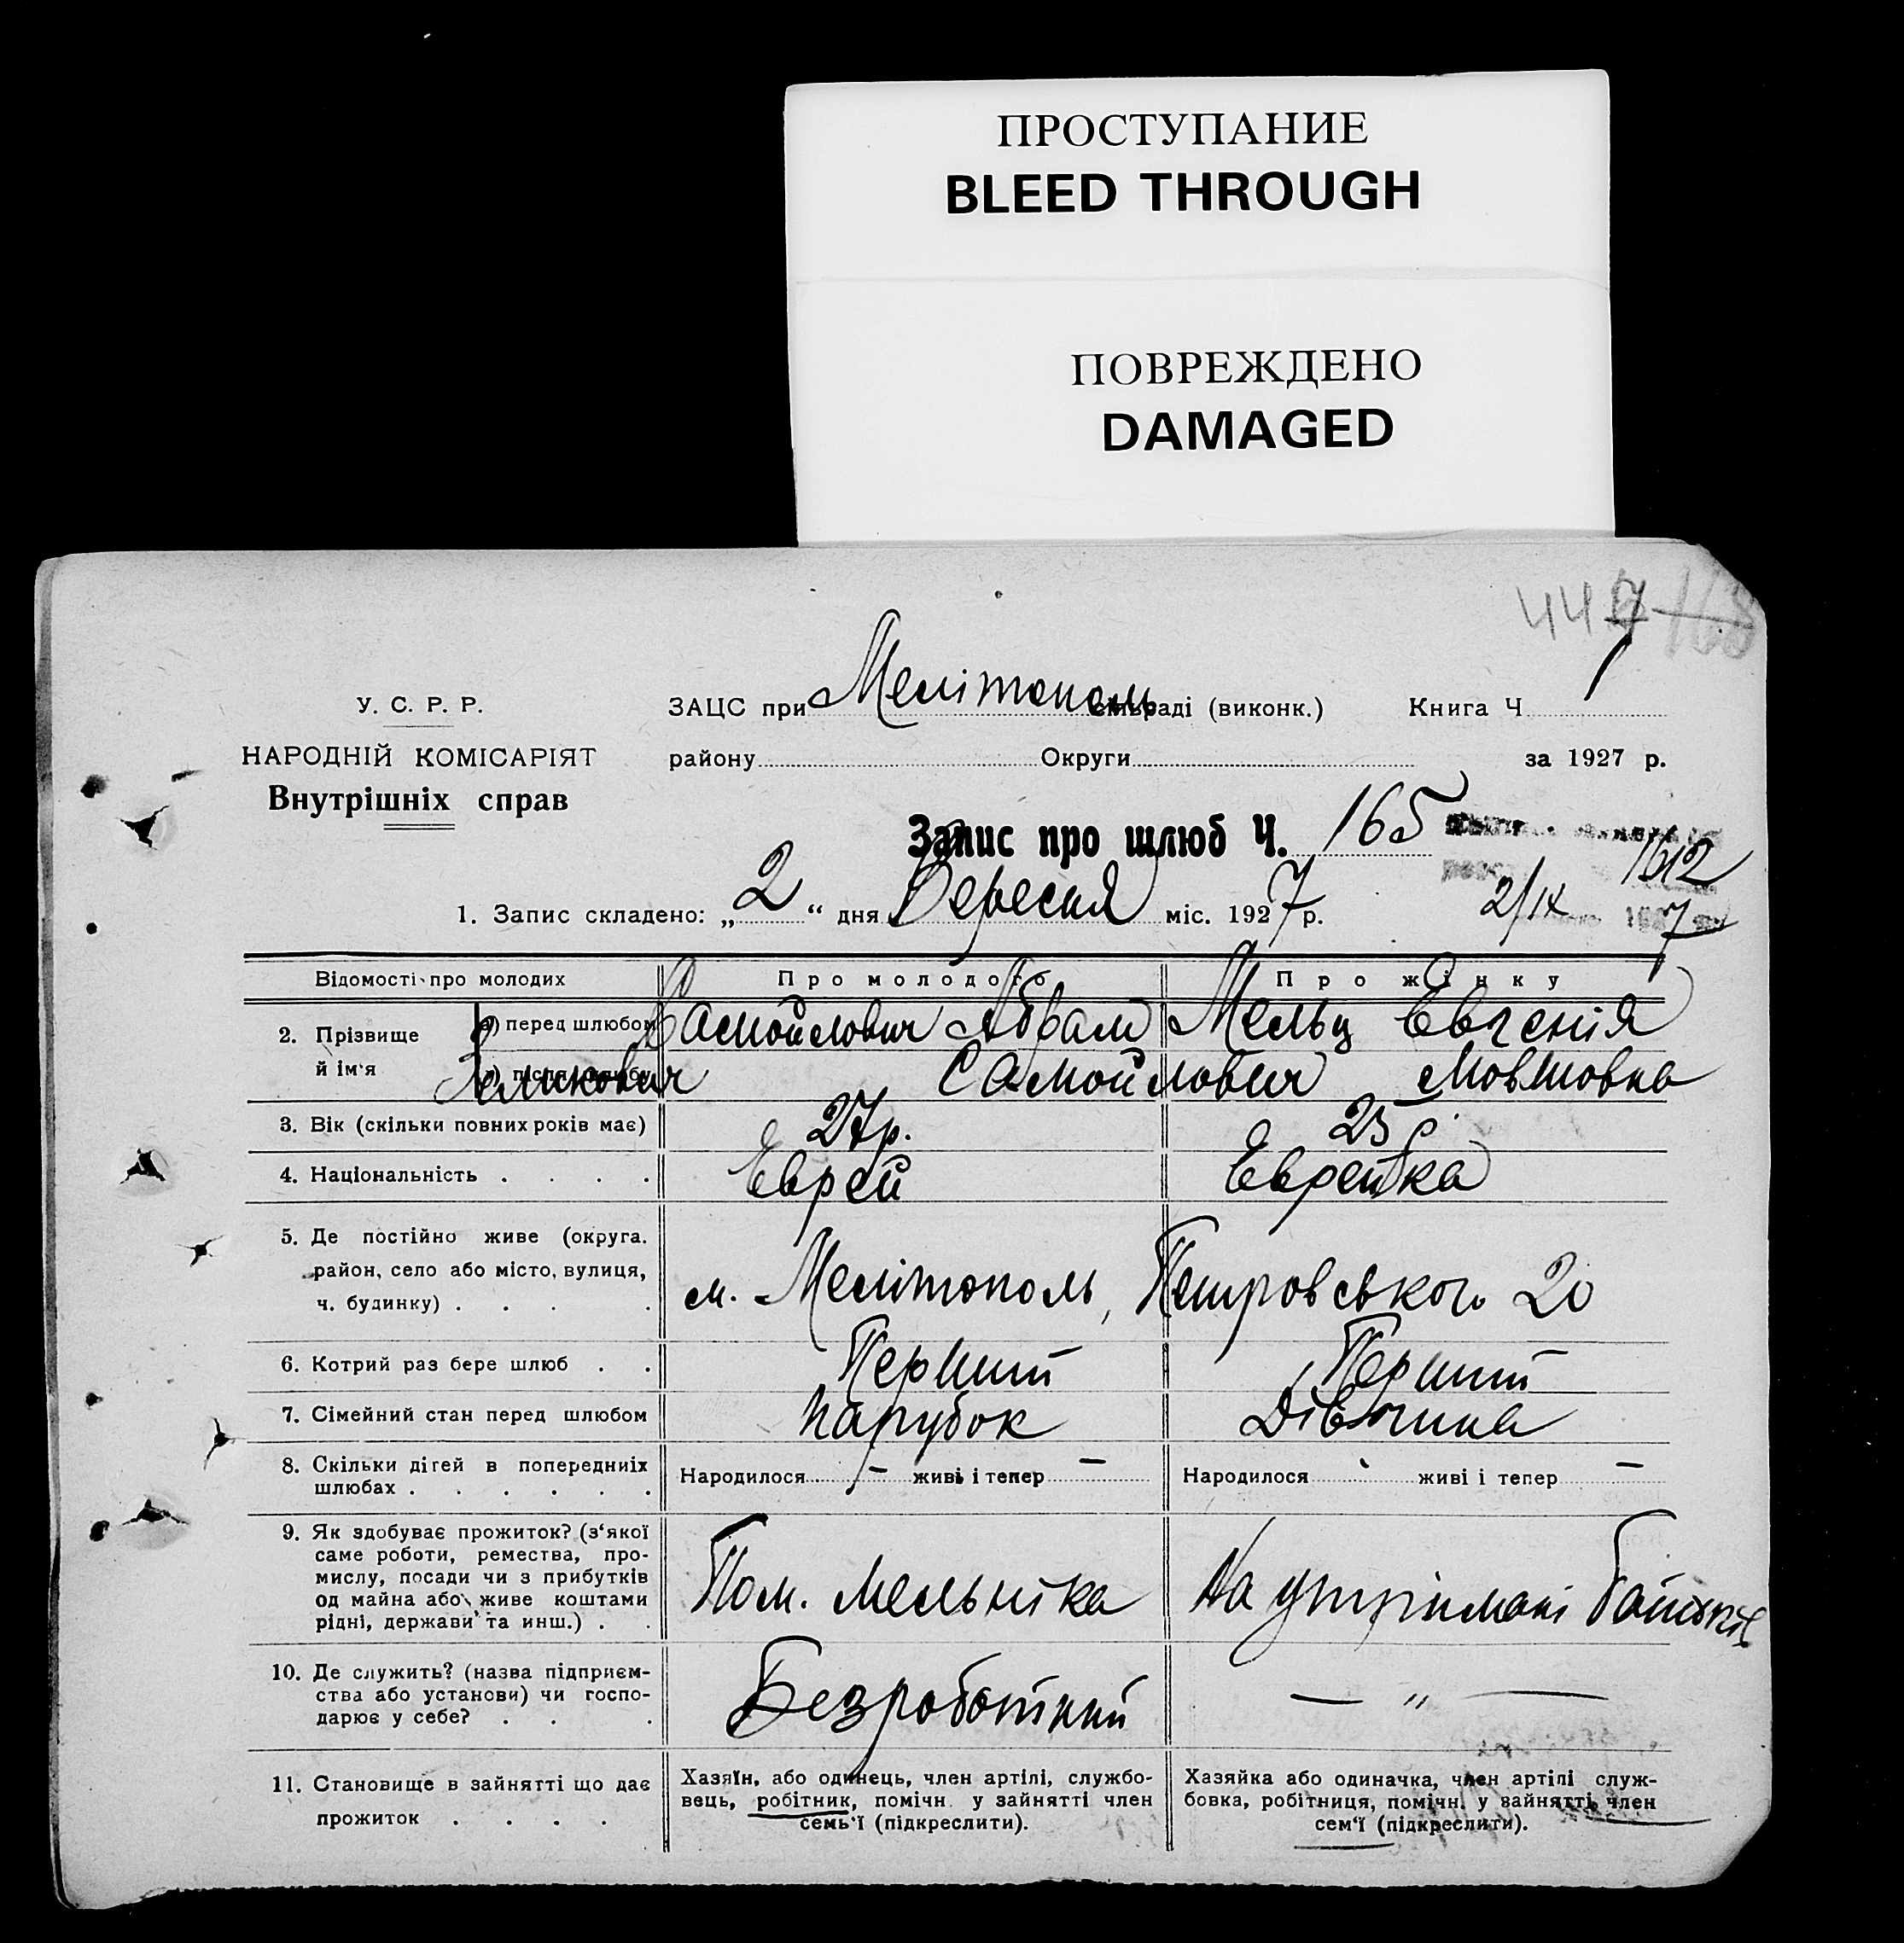 ПРОСТУПАНИЕ
BLEED THROUGH
ПОВРЕЖДЕНО
DAMAGED
447 168
У. С. Р. Р.
НАРОДНІЙ КОМІСАРІЯТ
Внутрішніх справ
ЗАЦС при Мелітополь раді (виконк.) Книга Ч. 1
району Округи за 1927 р.
Запис про шлюб Ч. 165
1612
1. Запис складено: „2“ дня Вересня міс. 1927 р. 2/IX 7
Відомості про молодих Про молодого Про жінку
2. Прізвище й ім'я
а) перед шлюбом Самойлович Абрам Мельц Евгенія
Зеликович Самойлович Мовшовна
3. Вік (скільки повних років має) 27 р. 25 р.
4. Національність Еврей Еврейка
5. Де постійно живе (округа.
район, село або місто, вулиця,
ч. будинку) м. Мелітополь, Петровського 20
6. Котрий раз бере шлюб Перший Перший
7. Сімейний стан перед шлюбом Парубок Дівчина
8. Скільки дітей в попередниіх
шлюбах Народилося — живі і тепер — Народилося живі і тепер —
9. Як здобуває прожиток? (з'якої
саме роботи, ремества, про-
мислу, посади чи з прибутків
од майна або живе коштами
рідні, держави та инш.)
Пом. мельніка На утрімані батьків
10. Де служить? (назва підприєм-
ства або установи) чи госпо-
дарює у себе?
Безроботний — „ —
11. Становище в зайнятті що дає
прожиток
Хазяїн, або одинець, член артілі, службо-
вець, робітник, помічн. у зайнятті член
семь'ї (підкреслити).
Хазяйка або одиначка, член артілі служ-
бовка, робітниця, помічн. у зайнятті, член
сем'ї (підкреслити).